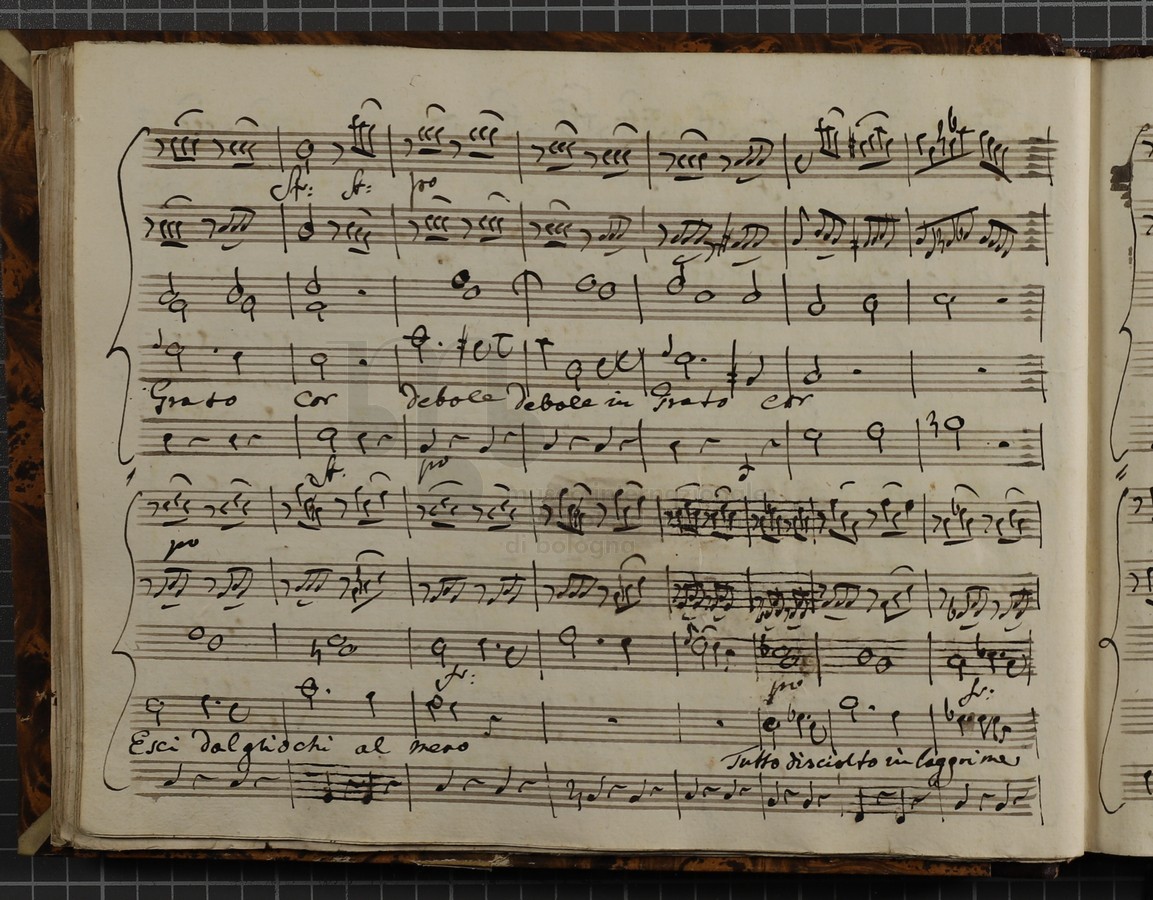 fr: fr: po
Grato cor debole debole in Grato cor
fr. po
po
fr:
po fr:
Esci dal gliochi al meno
Tutto disciolto in laggrime
di bologna